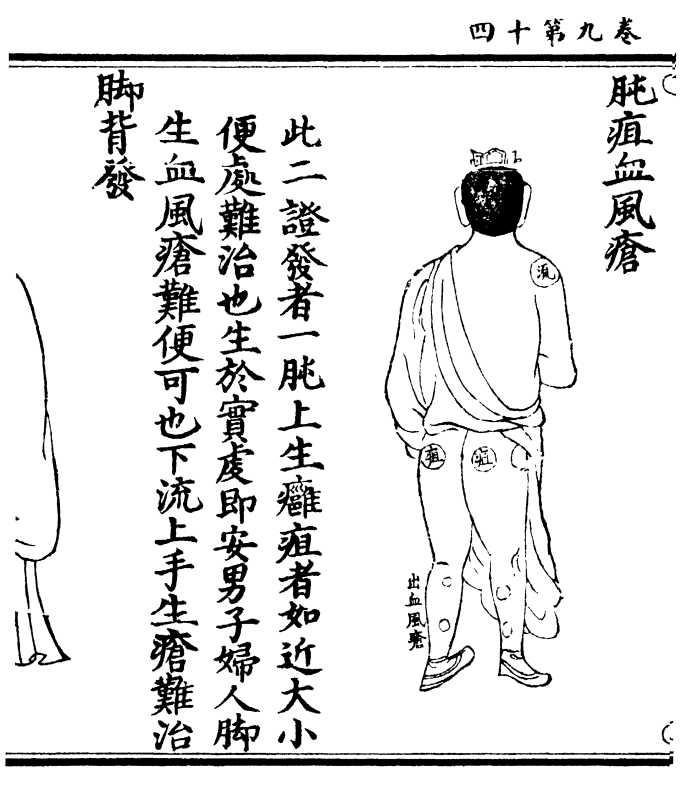 卷九第十四
肫疽血風瘡
流
疽
疽
出血風瘡
此二證發者一肫上生癰疽者如近大小
便處難治也生於實處即安男子婦人脚
生血風瘡難便可也下流上手生瘡難治
脚背發